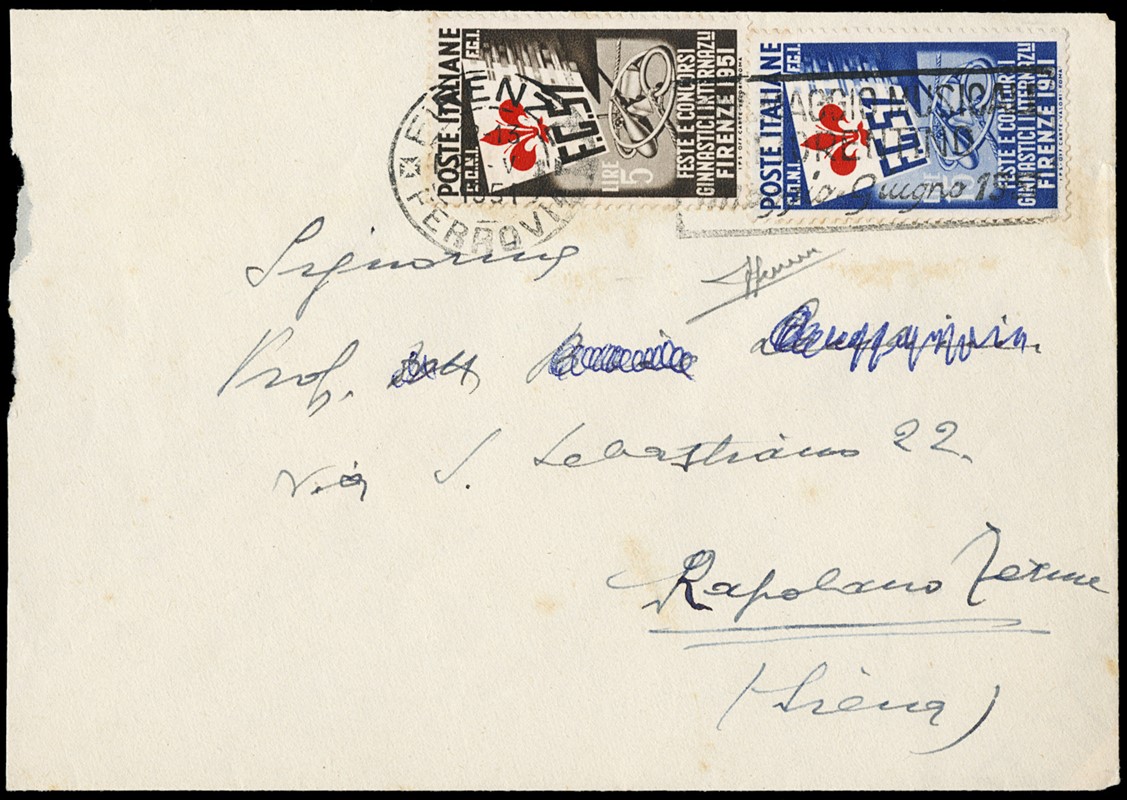 POSTE ITALIANE
F.G.I.
C.O.N.I.
F.G.51
LIRE
5
FESTE E CONCORSI
GINNASTICI INTERNAZ.LI
FIRENZE 1951
POSTE ITALIANE
F.G.I.
C.O.N.I.
F.G.51
FESTE E CONCORSI
GINNASTICI INTERNAZ.LI
FIRENZE 1951
1951
FERROVIA
MAGGIO MUSICALE
FIORENTINO
Maggio-Giugno
Signorina
Prof.
Via S. Sebastiano 22.
Rapolano Terme
(Siena)